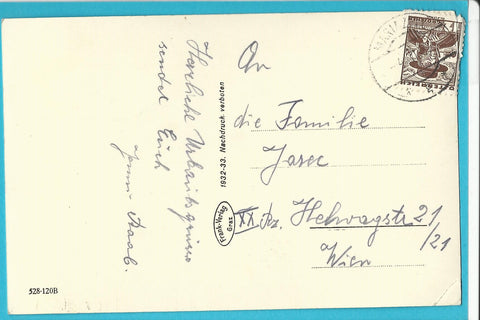 Herzliche Urlaubsgrüsse
sendet Euch
Raab.
1932-33. Nachdruck verboten
Frank-Verlag
Graz
An
die Familie
Jasec
XX. Bz. Helwagstr 21/21
Wien
ÖSTERREICH
528-120B